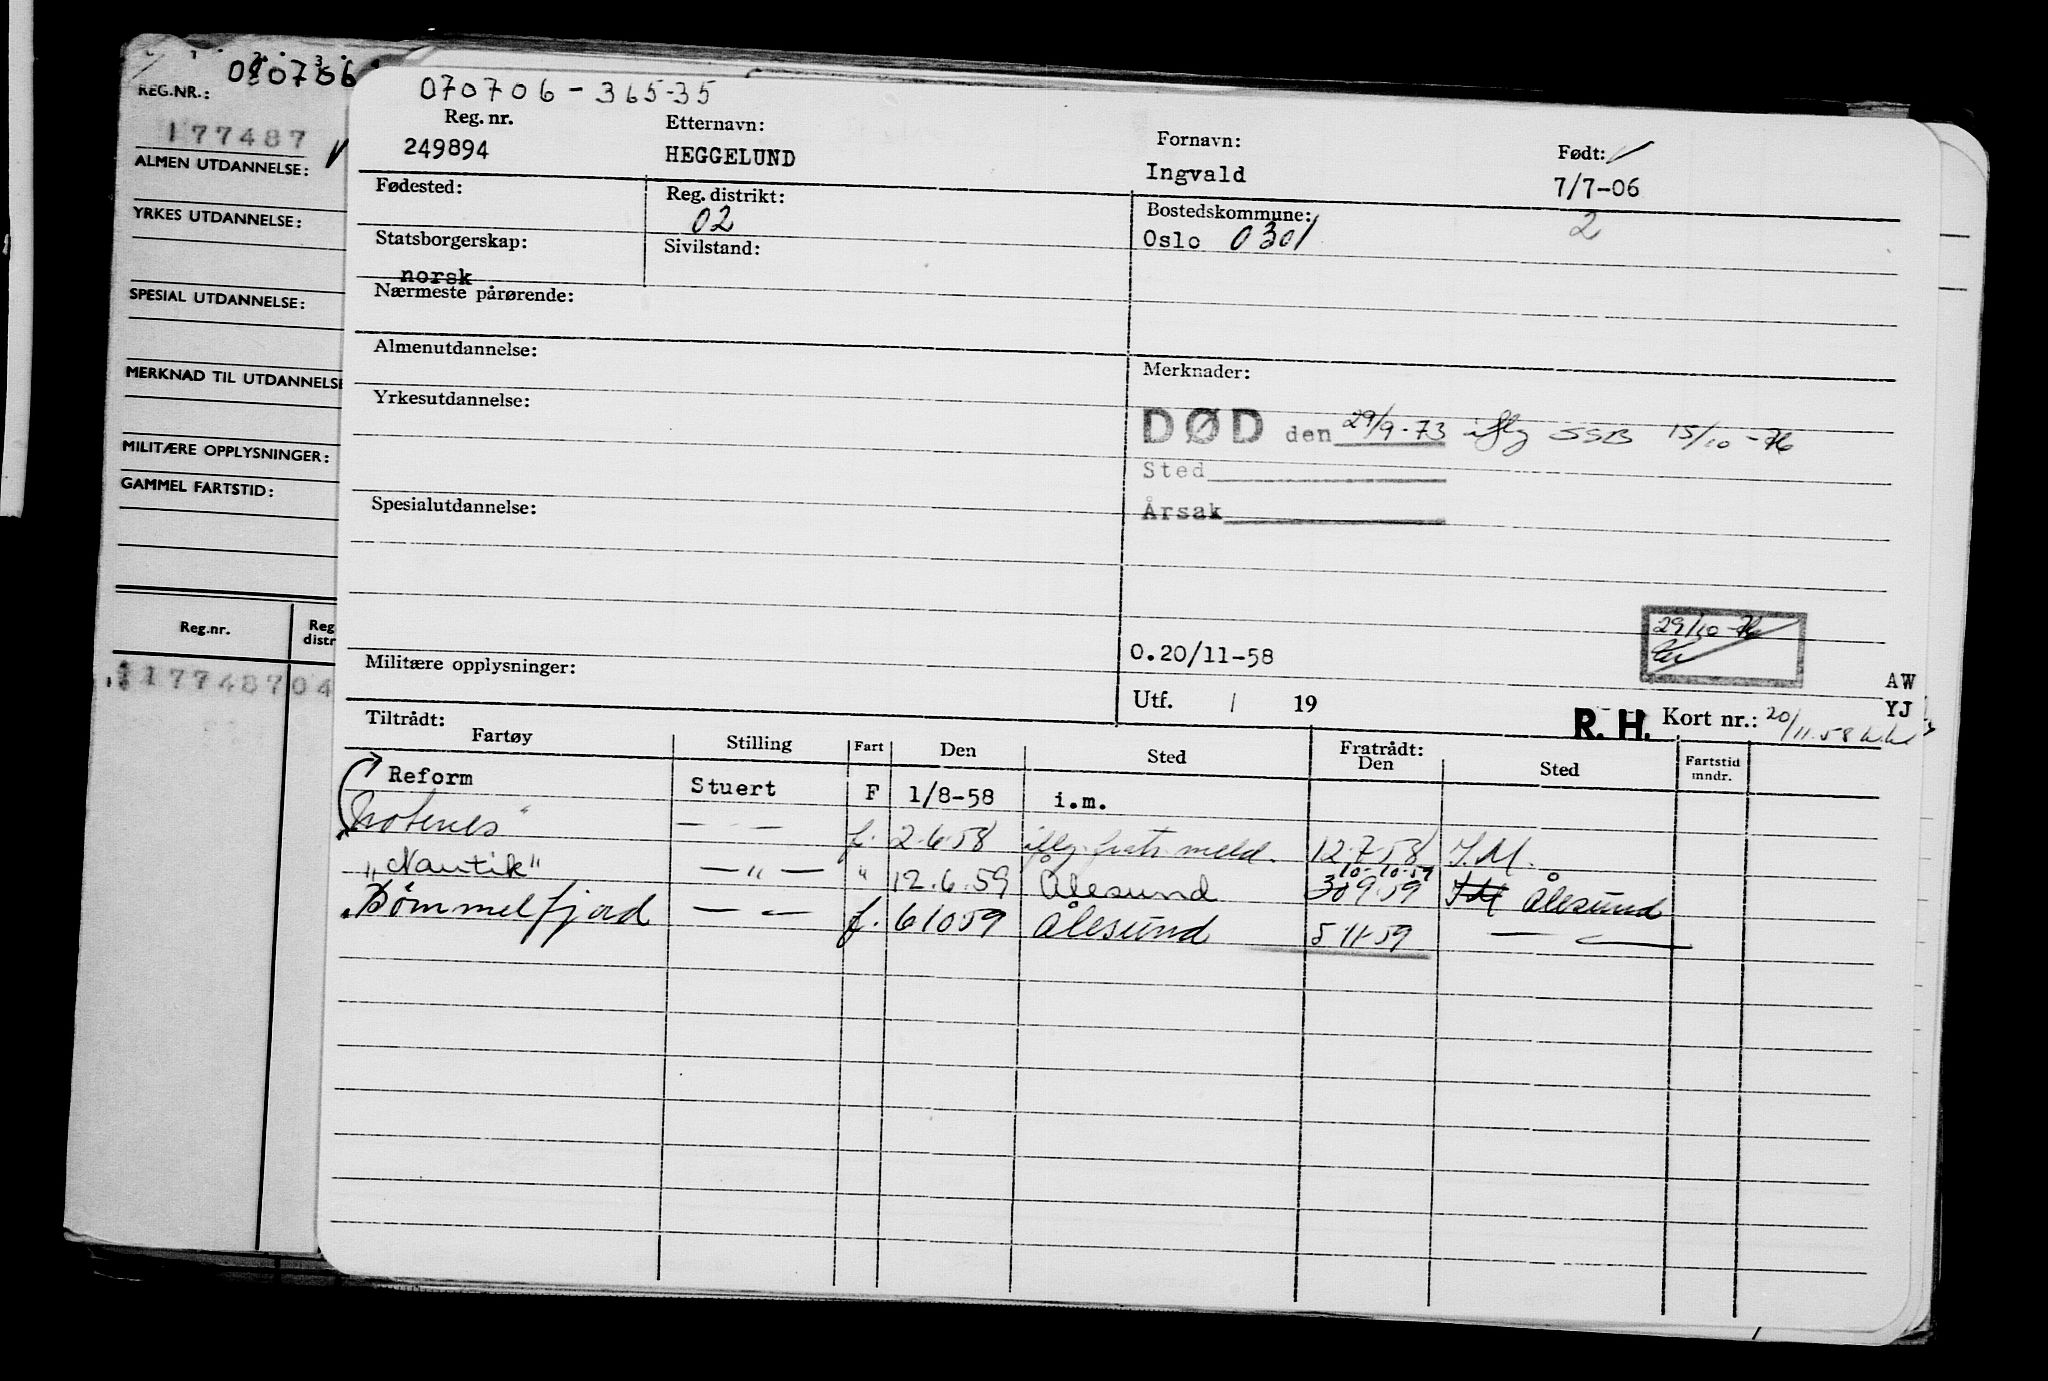 070706
REG.NR.:
177487
ALMEN UTDANNELSE:
YRKES UTDANNELSE:
SPESIAL UTDANNELSE:
MERKNAD TIL UTDANNELSE
MILITÆRE OPPLYSNINGER:
GAMMEL FARTSTID:
Reg.nr. Reg distr
177487 04
070706-365-35
Reg. nr. Etternavn: Fornavn: Født:
249894 HEGGELUND Ingvald 7/7-06
Fødested: Reg. distrikt: Bostedskommune: 2
02 Oslo 0301
Statsborgerskap: Sivilstand:
norsk
Nærmeste pårørende:
Almenutdannelse: Merknader:
Yrkesutdannelse:
DØD den 29/9-73 iflg SSB 15/10-76
Sted
Årsak
Spesialutdannelse:
29/10-76
O.20/11-58
Militære opplysninger:
AW
Utf. / 19 YJ
R. H. Kort nr.: 20/11.58
Tiltrådt: Fratrådt:
Fartøy Stilling Fart Den Sted Den Sted Fartstid mndr.
Reform Stuert F 1/8-58 i.m.
— " — f. 2.6.58 iflg. fratr. meld. 12.7.58 I.M.
10-10-59
"Nautik" — " — " 12.6.59 Ålesund 30 9.59 I.M Ålesund
Bømmelfjord — " — f. 6 10 59 Ålesund 5 11-59 — " —